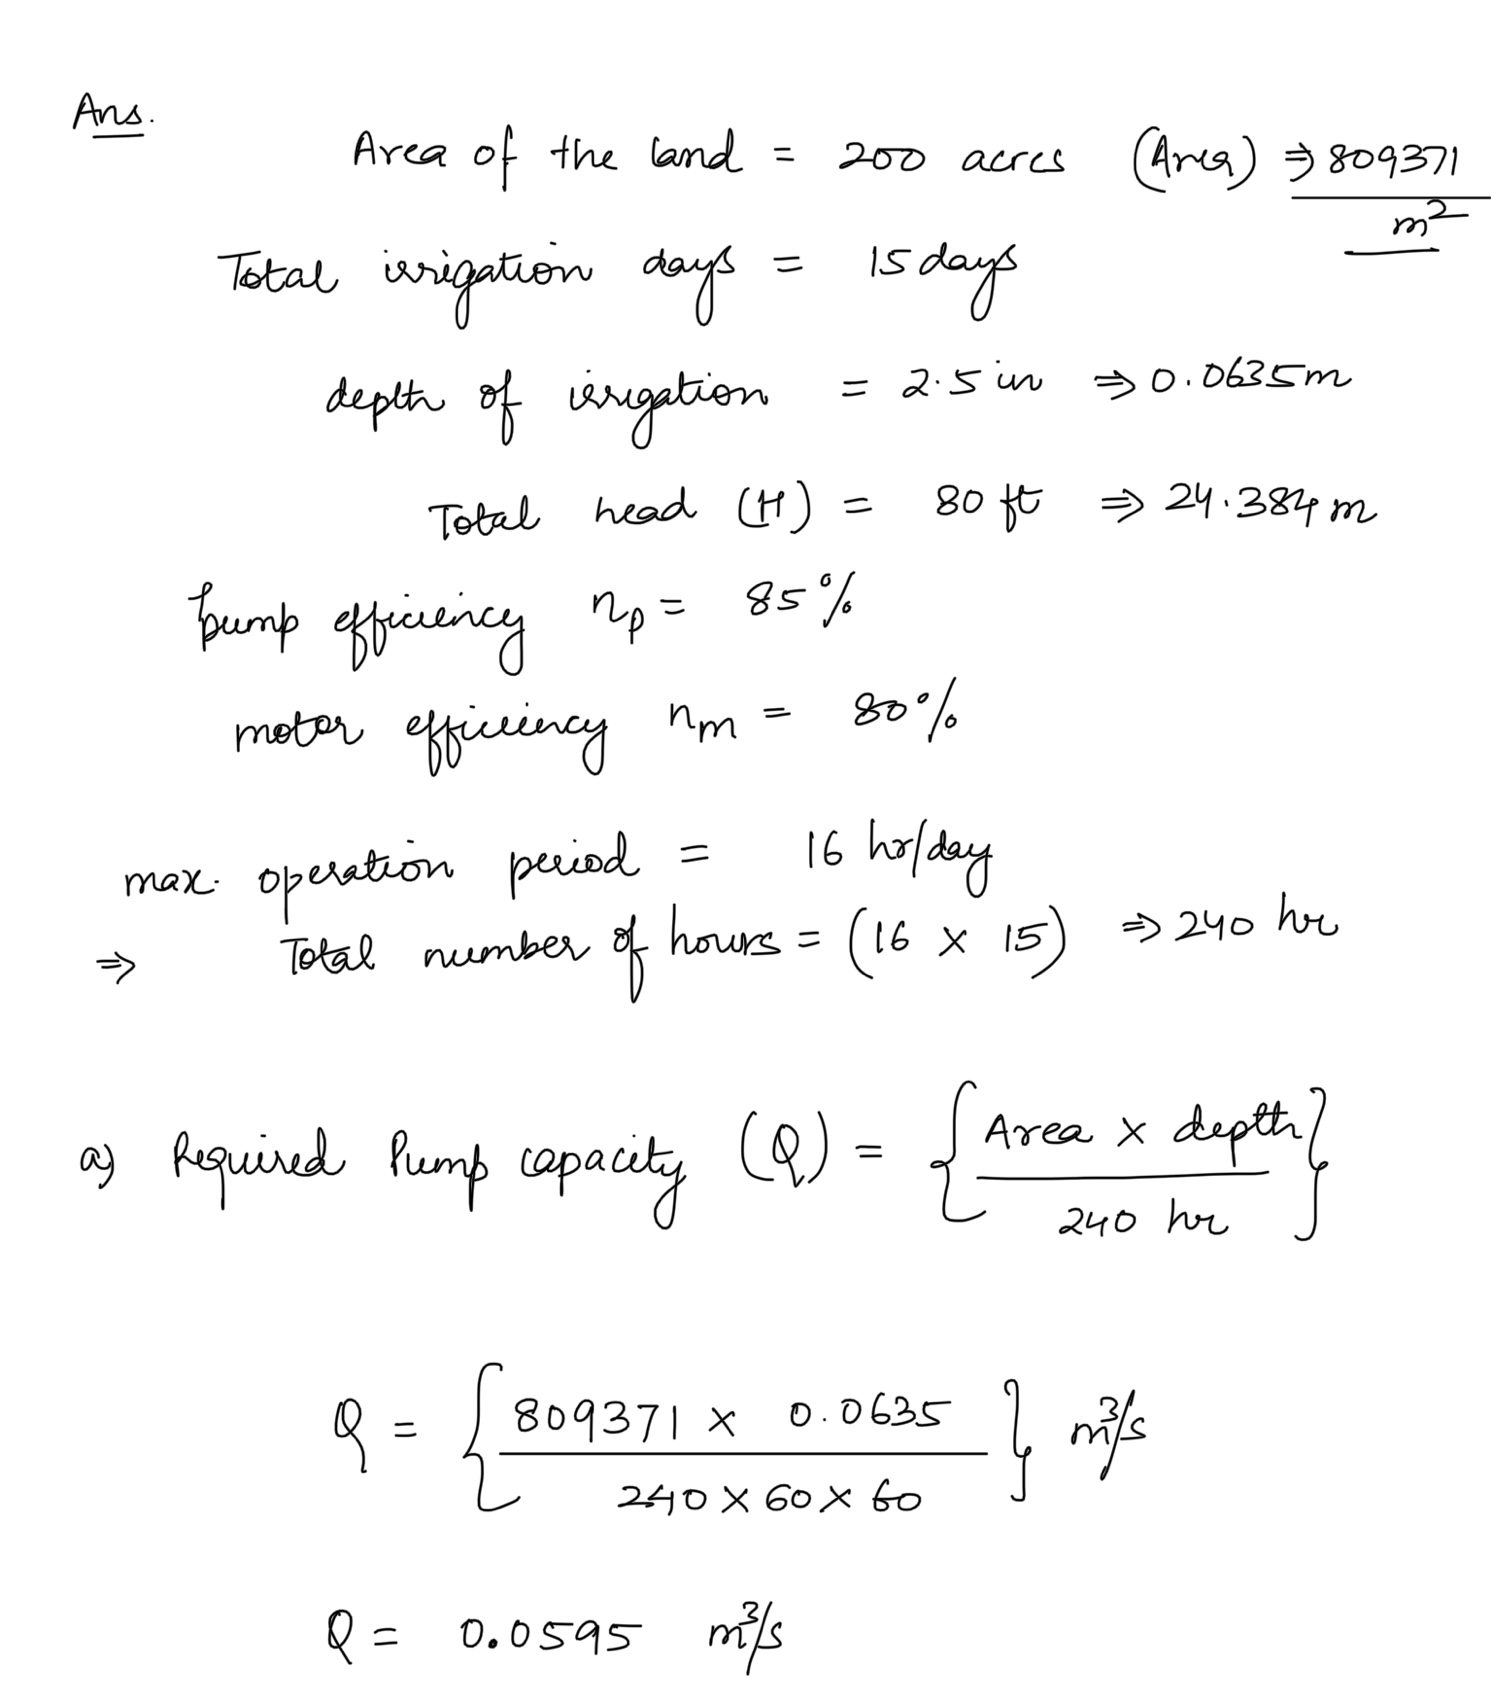 Ans.
Area of the land = 200 acres (Area) ⇒ 809371 m²
Total irrigation days = 15 days
depth of irrigation = 2.5 in ⇒ 0.0635m
Total head (H) = 80 ft ⇒ 24.384 m
pump efficiency ηp = 85%
motor efficiency ηm = 80%
max. operation period = 16 hr/day
⇒ Total number of hours = (16 × 15) ⇒ 240 hr
a) Required Pump capacity (Q) = {Area × depth / 240 hr}
Q = {809371 × 0.0635 / 240 × 60 × 60} m³/s
Q = 0.0595 m³/s